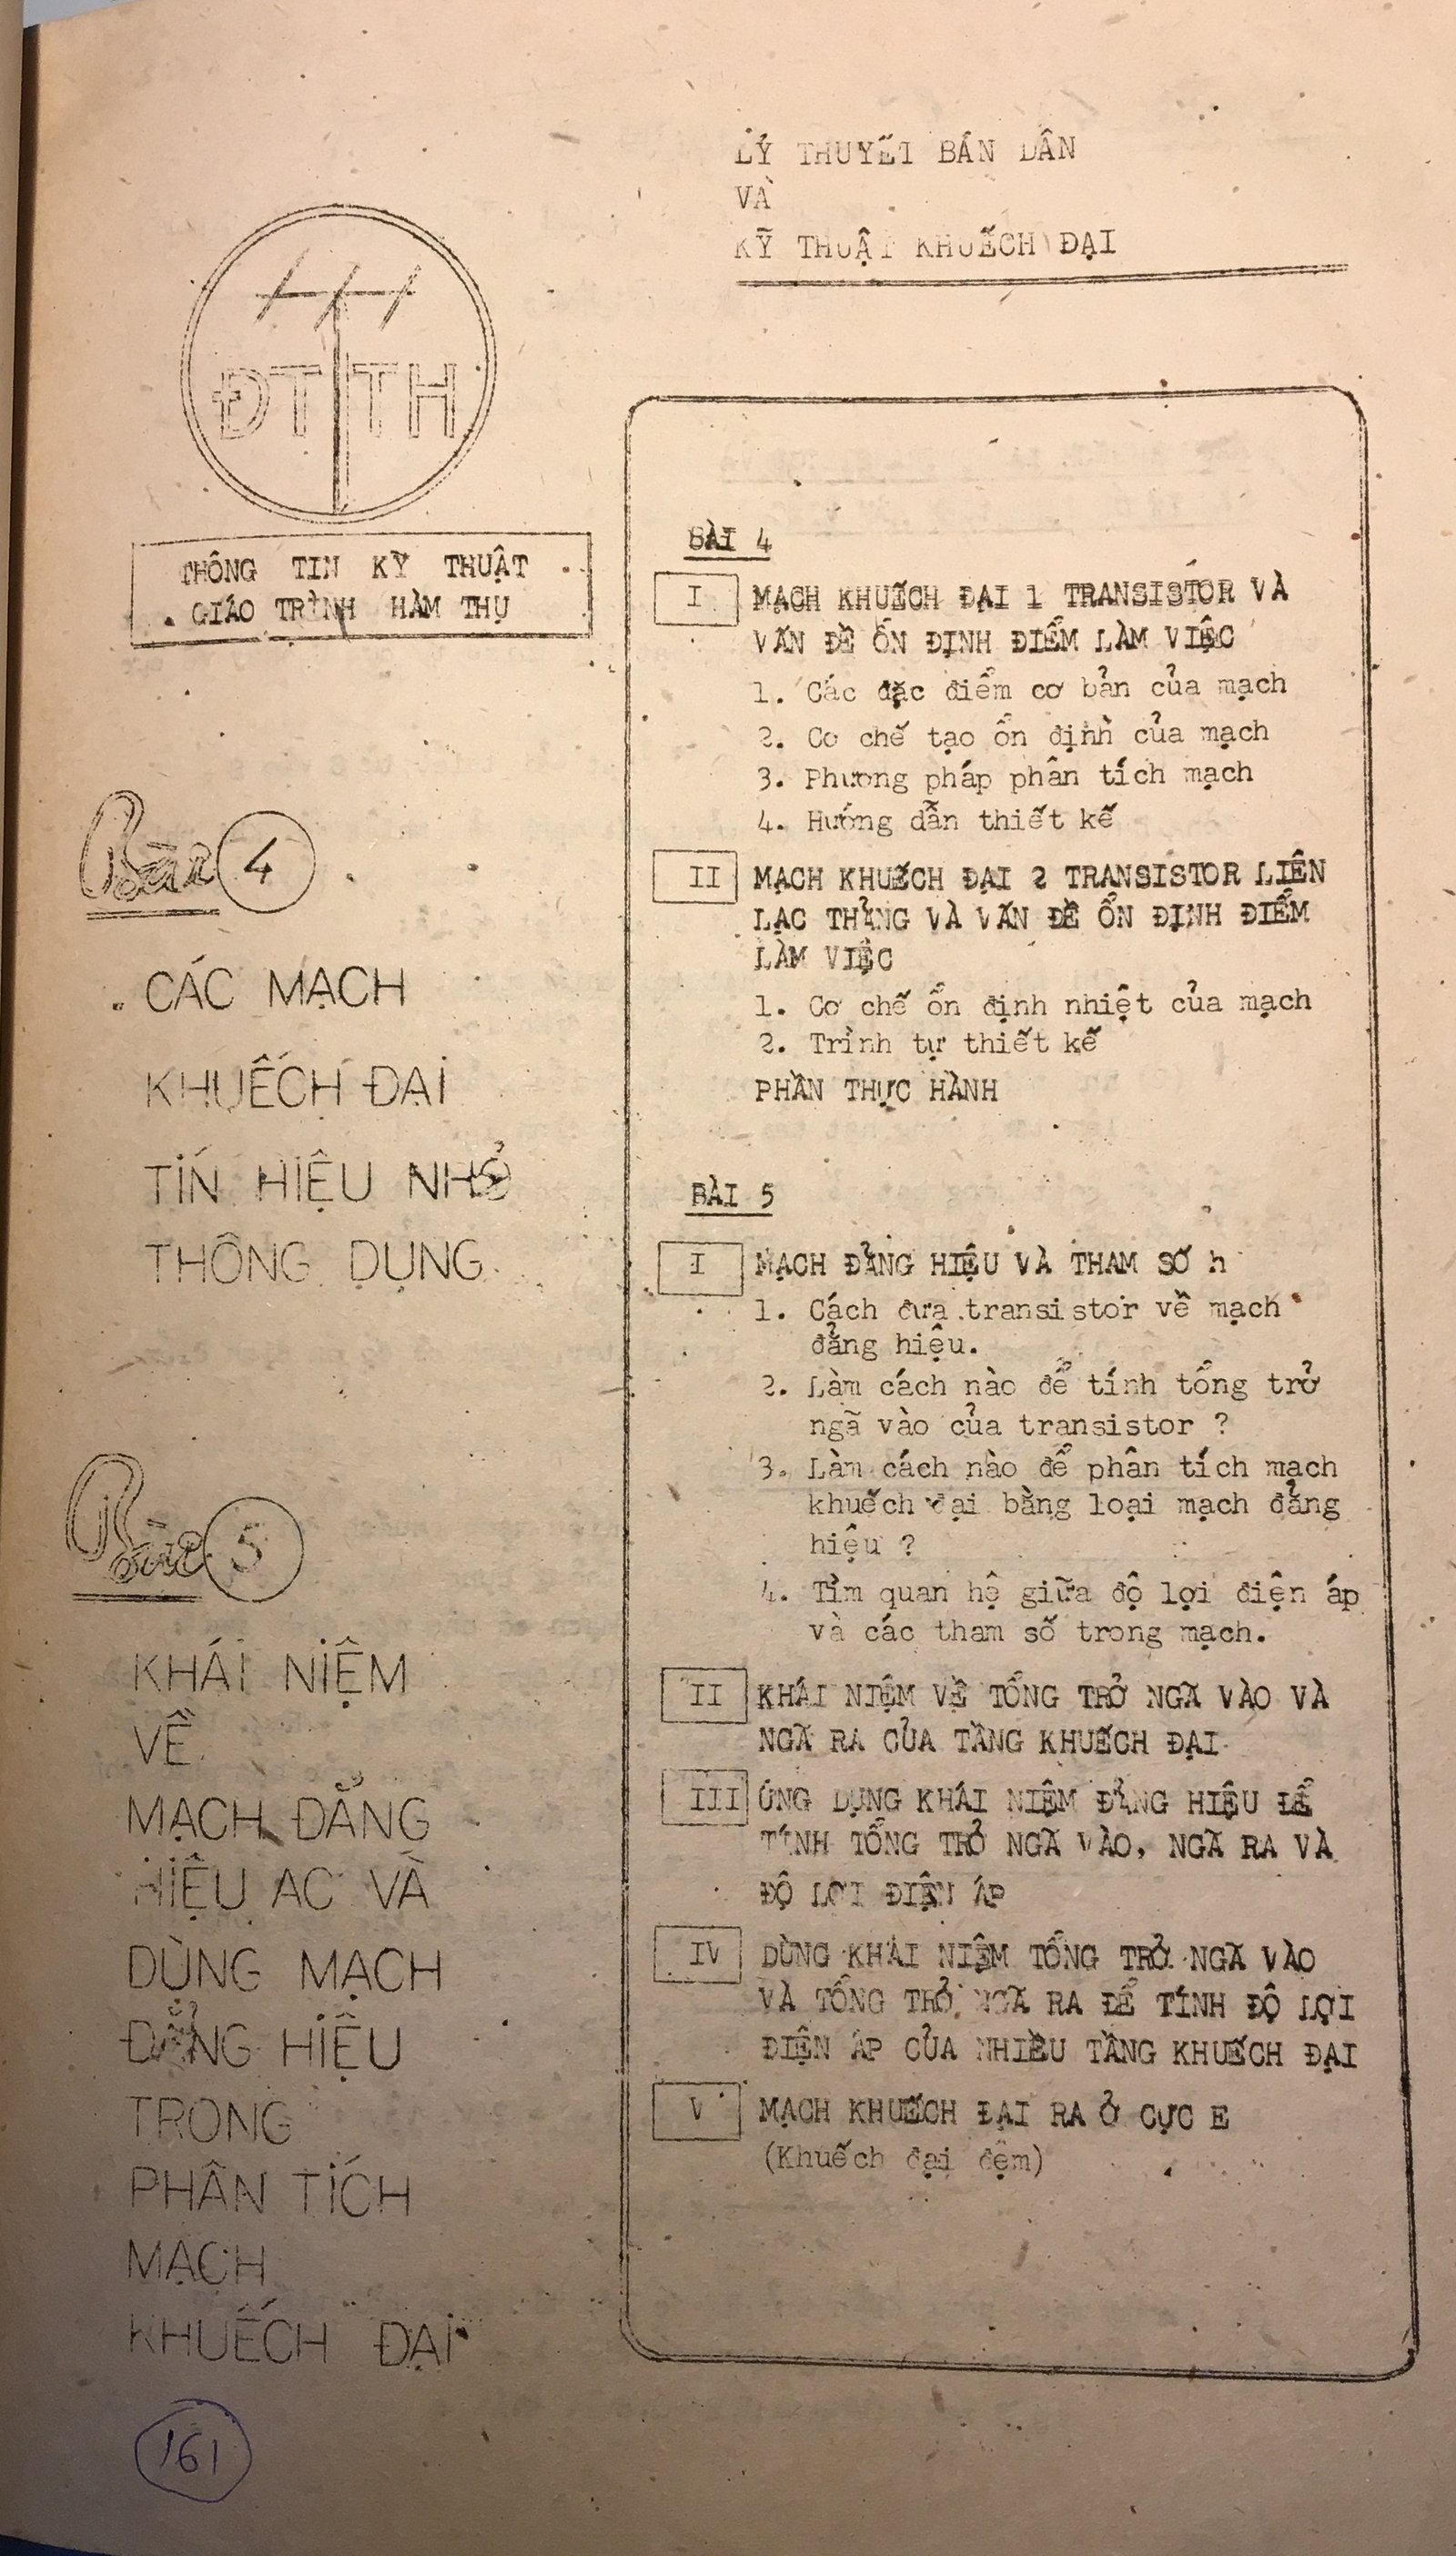 LÝ THUYẾT BÁN DẪN
VÀ
KỸ THUẬT KHUẾCH ĐẠI
ĐTTH
THÔNG TIN KỸ THUẬT
GIÁO TRÌNH HÀM THỤ
Bài 4
CÁC MẠCH
KHUẾCH ĐẠI
TÍN HIỆU NHỎ
THÔNG DỤNG
Bài 5
KHÁI NIỆM
VỀ
MẠCH ĐẲNG
HIỆU AC VÀ
DÙNG MẠCH
ĐẲNG HIỆU
TRONG
PHÂN TÍCH
MẠCH
KHUẾCH ĐẠI
161
BÀI 4
I MẠCH KHUẾCH ĐẠI 1 TRANSISTOR VÀ
VẤN ĐỀ ỔN ĐỊNH ĐIỂM LÀM VIỆC
1. Các đặc điểm cơ bản của mạch
2. Cơ chế tạo ổn định của mạch
3. Phương pháp phân tích mạch
4. Hướng dẫn thiết kế
II MẠCH KHUẾCH ĐẠI 2 TRANSISTOR LIÊN
LẠC THẲNG VÀ VẤN ĐỀ ỔN ĐỊNH ĐIỂM
LÀM VIỆC
1. Cơ chế ổn định nhiệt của mạch
2. Trình tự thiết kế
PHẦN THỰC HÀNH
BÀI 5
I MẠCH ĐẲNG HIỆU VÀ THAM SỐ h
1. Cách đưa transistor về mạch
đẳng hiệu.
2. Làm cách nào để tính tổng trở
ngã vào của transistor ?
3. Làm cách nào để phân tích mạch
khuếch đại bằng loại mạch đẳng
hiệu ?
4. Tìm quan hệ giữa độ lợi điện áp
và các tham số trong mạch.
II KHÁI NIỆM VỀ TỔNG TRỞ NGÃ VÀO VÀ
NGÃ RA CỦA TẦNG KHUẾCH ĐẠI
III ỨNG DỤNG KHÁI NIỆM ĐẲNG HIỆU ĐỂ
TÍNH TỔNG TRỞ NGÃ VÀO, NGÃ RA VÀ
ĐỘ LỢI ĐIỆN ÁP
IV DÙNG KHÁI NIỆM TỔNG TRỞ NGÃ VÀO
VÀ TỔNG TRỞ NGÃ RA ĐỂ TÍNH ĐỘ LỢI
ĐIỆN ÁP CỦA NHIỀU TẦNG KHUẾCH ĐẠI
V MẠCH KHUẾCH ĐẠI RA Ở CỰC E
(Khuếch đại đệm)